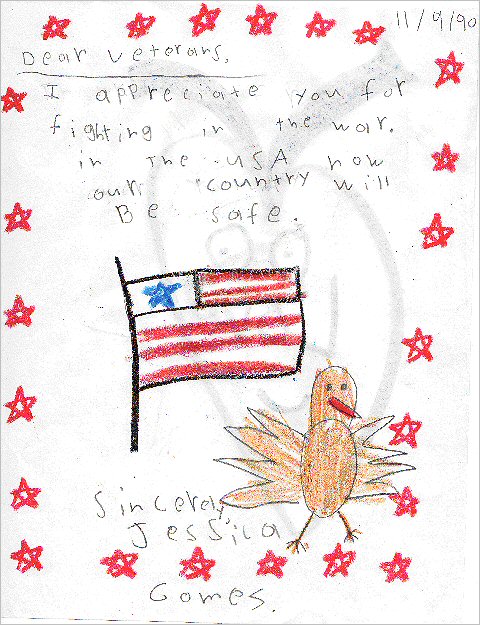 11/9/90
Dear veterans,
I appreciate you for
fighting in the war.
in The USA now
our country will
Be safe.
Sincerely,
Jessica
Gomes.